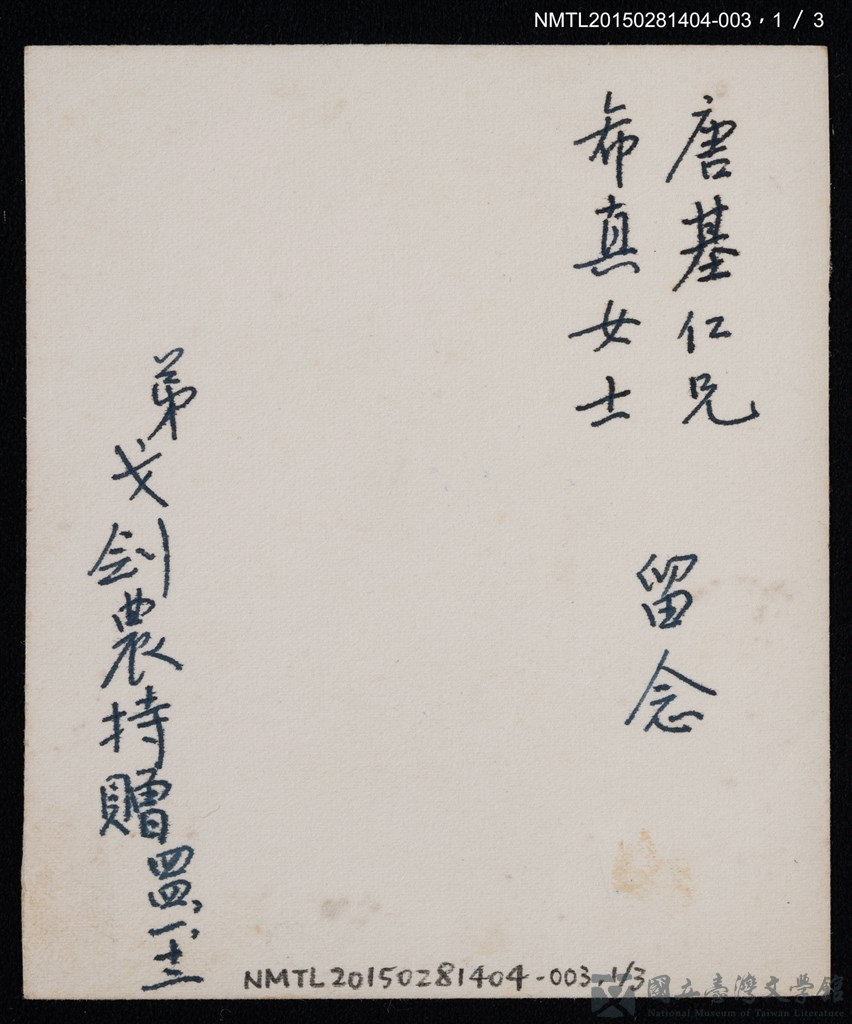 NMTL20150281404-003，1／3
唐基仁兄
希真女士
留念
弟
戈劍農持贈
四四、一、十二
NMTL20150281404-003,1/3
國立臺灣文學館
National Museum of Taiwan Literature